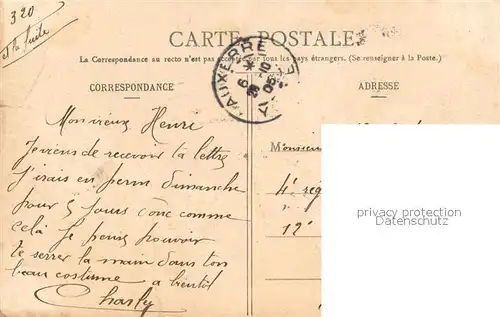 320
et la suite
CARTE POSTALE
La Correspondance au recto n'est pas acceptée par tous les pays étrangers. (Se renseigner à la Poste.)
AUXERRE
CORRESPONDANCE
ADRESSE
Mon vieux Henri
Je viens de recevoir ta lettre
J'irais en perm dimanche
pour 5 jours donc comme
celà je peux pouvoir
te serrer la main dans ton
beau costume a bientôt
Charly
Monsieur
4e rég
12e
privacy protection
Datenschutz